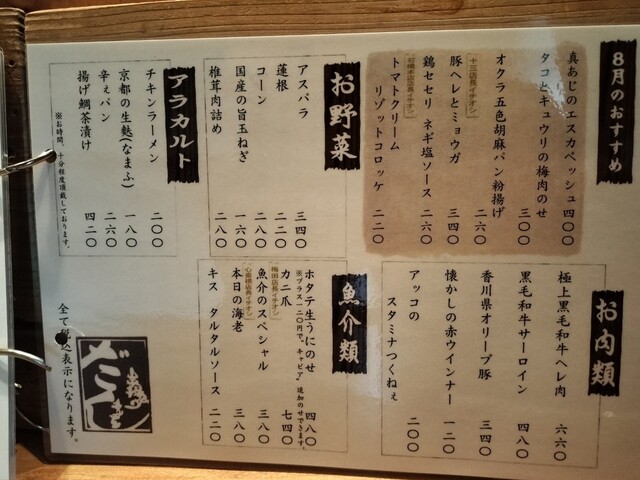 8月のおすすめ
真あじのエスカベッシュ 四〇〇
タコとキュウリの梅肉のせ 三〇〇
オクラ五色胡麻パン粉揚げ 二六〇
十三店長イチオシ
豚ヘレとミョウガ 三四〇
鶏セセリ ネギ塩ソース 二六〇
トマトクリーム
リゾットコロッケ 二二〇
お野菜
アスパラ 三四〇
蓮根 二二〇
コーン 二八〇
国産の旨玉ねぎ 一六〇
椎茸肉詰め 二八〇
アラカルト
チキンラーメン 二〇〇
京都の生麩(なまふ) 一八〇
辛ぇパン 二六〇
揚げ鯛茶漬け 四二〇
※お時間、十分程度頂戴しております。
お肉類
極上黒毛和牛ヘレ肉 六六〇
黒毛和牛サーロイン 四八〇
香川県オリーブ豚 三四〇
懐かしの赤ウインナー 一二〇
アッコの
スタミナつくねぇ 二〇〇
魚介類
ホタテ生うにのせ 四八〇
※プラス一二〇円で、キャビア追加のせできます。
カニ爪 七四〇
梅田店長イチオシ
魚介のスペシャル 三八〇
心斎橋店長イチオシ
本日の海老 三八〇
キス タルタルソース 二二〇
全て税込表示になります。